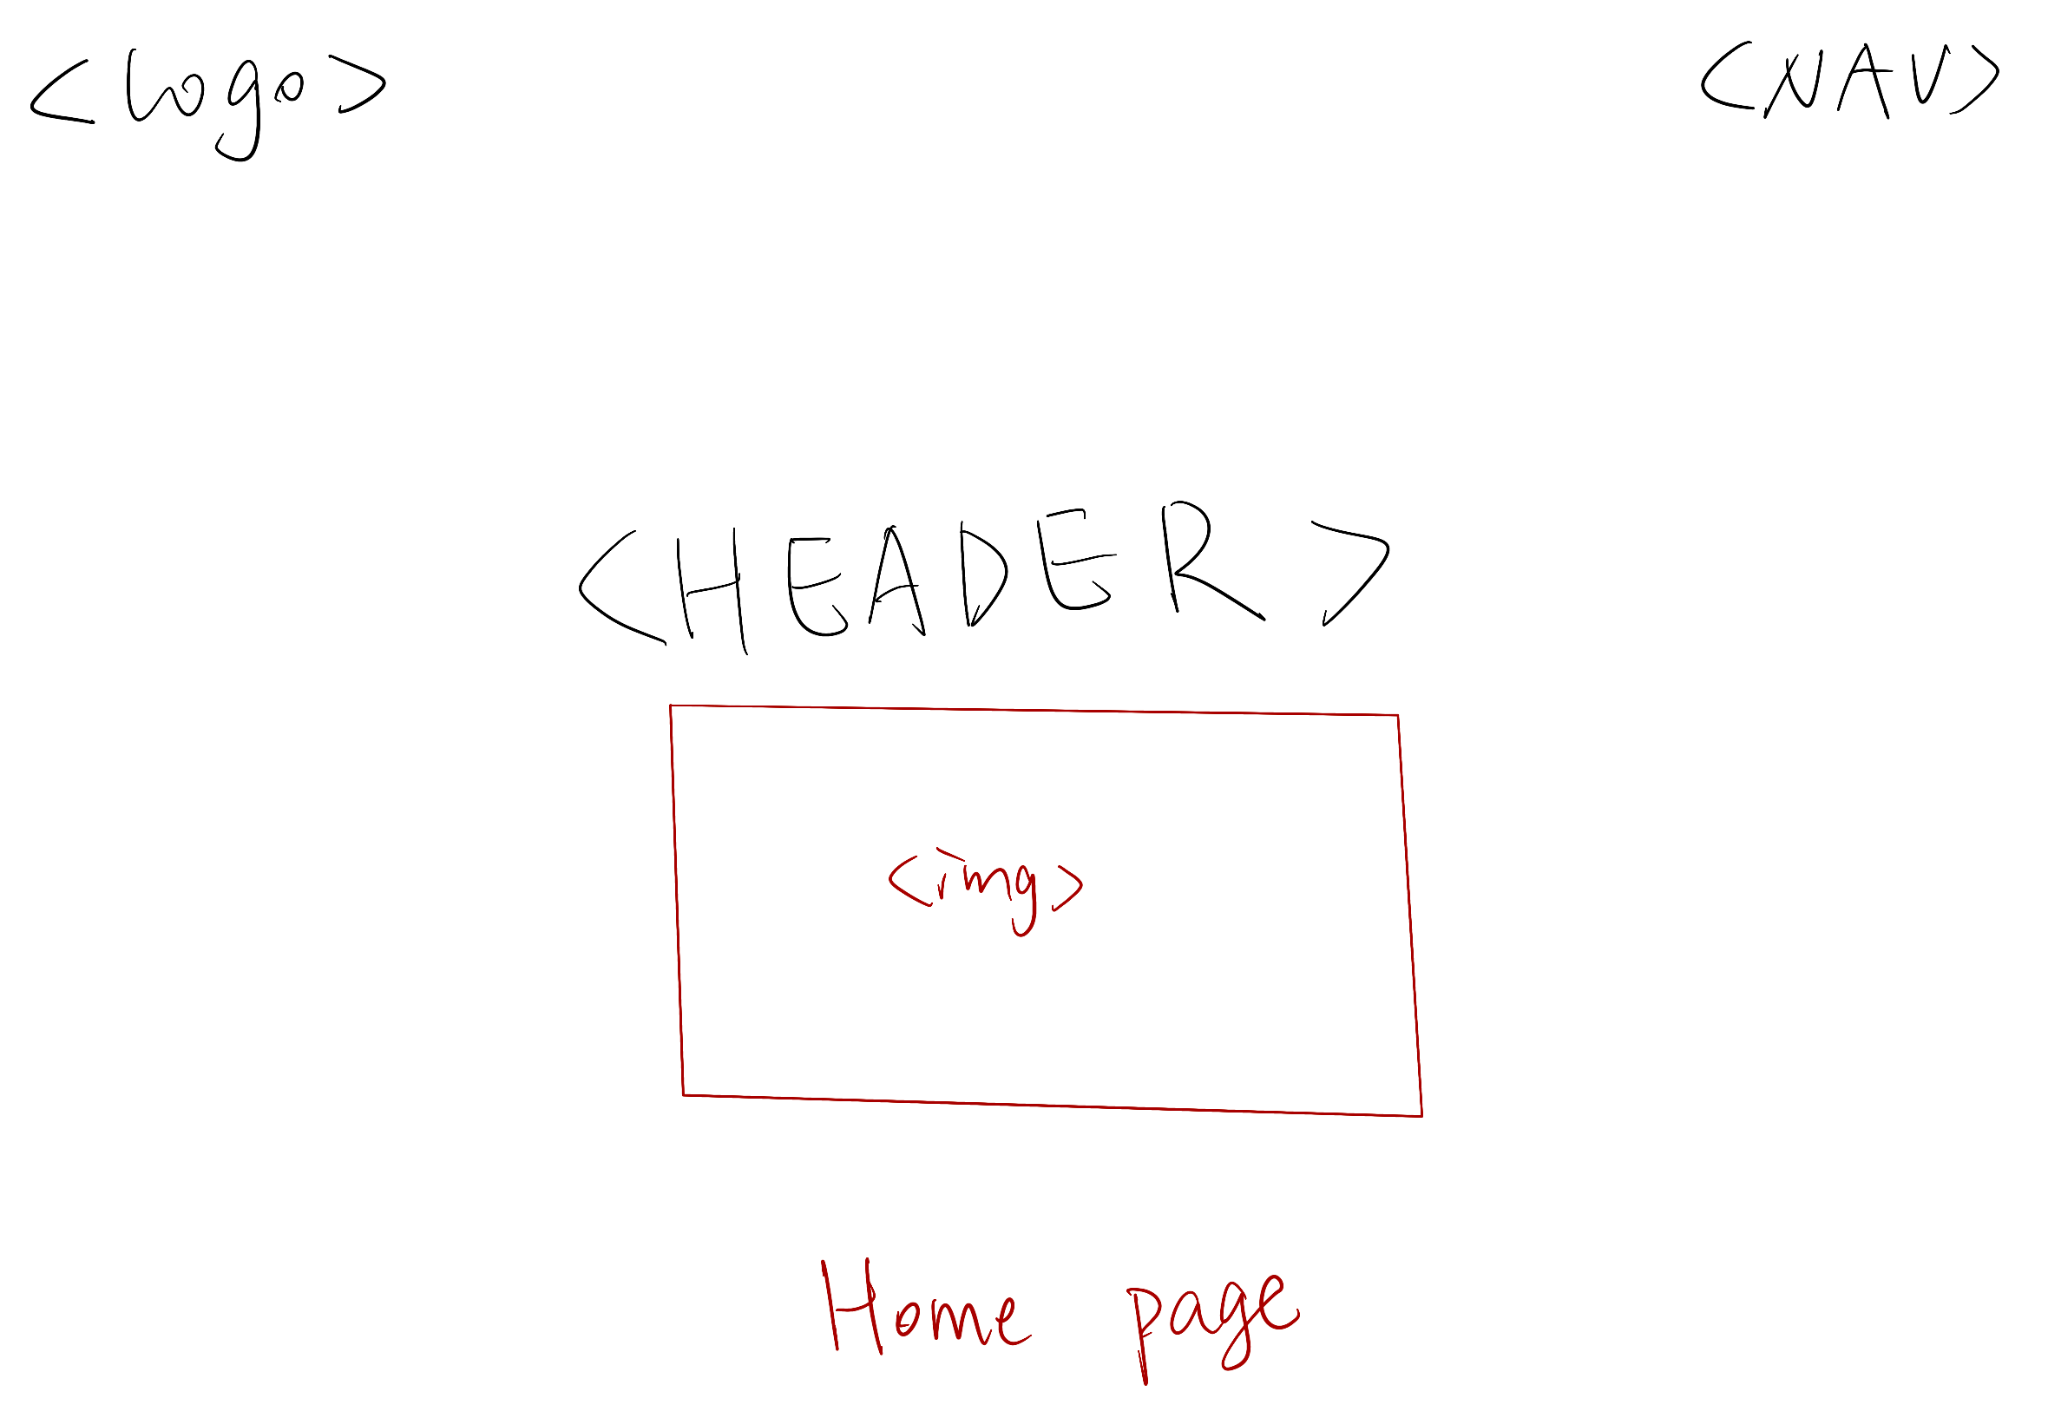 <logo> <NAV>
<HEADER>
<img>
Home page